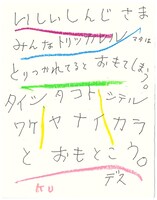 いしいしんじ さま
みんな トリツカレル
とりつかれてると おもてしまう。
タイン タコト シテル
ワケ ヤ ナイ カラ
と おもとこう。
デス